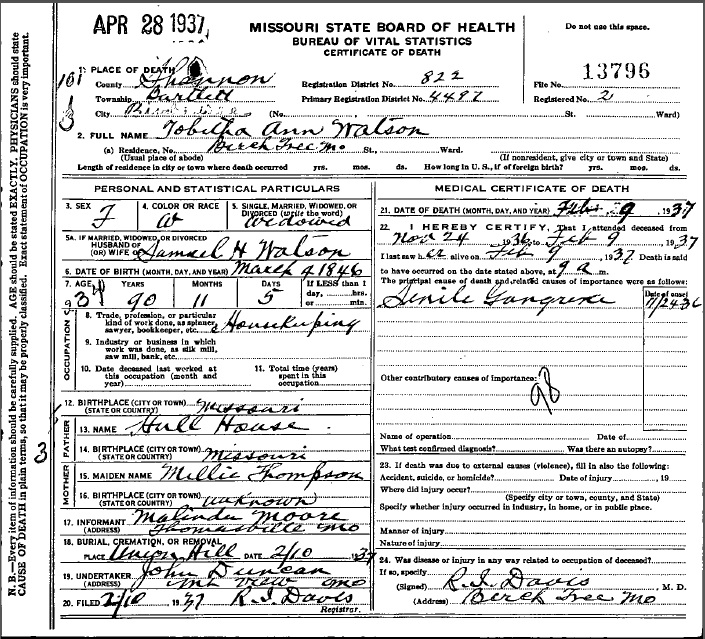 APR 28 1937
MISSOURI STATE BOARD OF HEALTH
BUREAU OF VITAL STATISTICS
CERTIFICATE OF DEATH
Do not use this space.
N. B.—Every item of information should be carefully supplied. AGE should be stated EXACTLY. PHYSICIANS should state
CAUSE OF DEATH in plain terms, so that it may be properly classified. Exact statement of OCCUPATION is very important.
1. PLACE OF DEATH
County Shannon Registration District No. 822 File No. 13796
Township Bartlett Primary Registration District No. 4487 Registered No. 2
City (No. St. Ward)
2. FULL NAME Tobitha Ann Watson
(a) Residence, No. Birch Tree Mo St., Ward.
(Usual place of abode) (If nonresident, give city or town and State)
Length of residence in city or town where death occurred yrs. mos. ds. How long in U. S., if of foreign birth? yrs. mos. ds.
PERSONAL AND STATISTICAL PARTICULARS
3. SEX F
4. COLOR OR RACE W
5. SINGLE, MARRIED, WIDOWED, OR DIVORCED (write the word) Widowed
5A. IF MARRIED, WIDOWED, OR DIVORCED
HUSBAND OF
(OR) WIFE OF Samuel H Watson
6. DATE OF BIRTH (MONTH, DAY, AND YEAR) March 4 1846
7. AGE YEARS MONTHS DAYS If LESS than 1
90 11 5 day, hrs.
or min.
OCCUPATION
8. Trade, profession, or particular
kind of work done, as spinner,
sawyer, bookkeeper, etc. Housekeeping
9. Industry or business in which
work was done, as silk mill,
saw mill, bank, etc.
10. Date deceased last worked at
this occupation (month and
year)
11. Total time (years)
spent in this
occupation
12. BIRTHPLACE (CITY OR TOWN) Missouri
(STATE OR COUNTRY)
FATHER
13. NAME Hull House
14. BIRTHPLACE (CITY OR TOWN) Missouri
(STATE OR COUNTRY)
3
MOTHER
15. MAIDEN NAME Millie Thompson
16. BIRTHPLACE (CITY OR TOWN)
(STATE OR COUNTRY) unknown
17. INFORMANT Malinda Moore
(ADDRESS) Thomasville Mo
18. BURIAL, CREMATION, OR REMOVAL
PLACE Union Hill DATE 2/10 1937
19. UNDERTAKER John Duncan
(ADDRESS) Mt View Mo
20. FILED 2/10 1937 R. I. Davis
Registrar.
MEDICAL CERTIFICATE OF DEATH
21. DATE OF DEATH (MONTH, DAY, AND YEAR) Feb. 9, 1937
22. I HEREBY CERTIFY, That I attended deceased from
Nov 24 1936, to Feb 9, 1937
I last saw her alive on Feb 9, 1937. Death is said
to have occurred on the date stated above, at 9 a m.
The principal cause of death and related causes of importance were as follows:
Senile Gangrene
Date of onset
11/24 36
Other contributory causes of importance:
98
Name of operation Date of
What test confirmed diagnosis? Was there an autopsy?
23. If death was due to external causes (violence), fill in also the following:
Accident, suicide, or homicide? Date of injury , 19
Where did injury occur?
(Specify city or town, county, and State)
Specify whether injury occurred in Industry, in home, or in public place.
Manner of injury
Nature of injury
24. Was disease or injury in any way related to occupation of deceased?
If so, specify
(Signed) R. I. Davis, M. D.
(Address) Birch Tree Mo